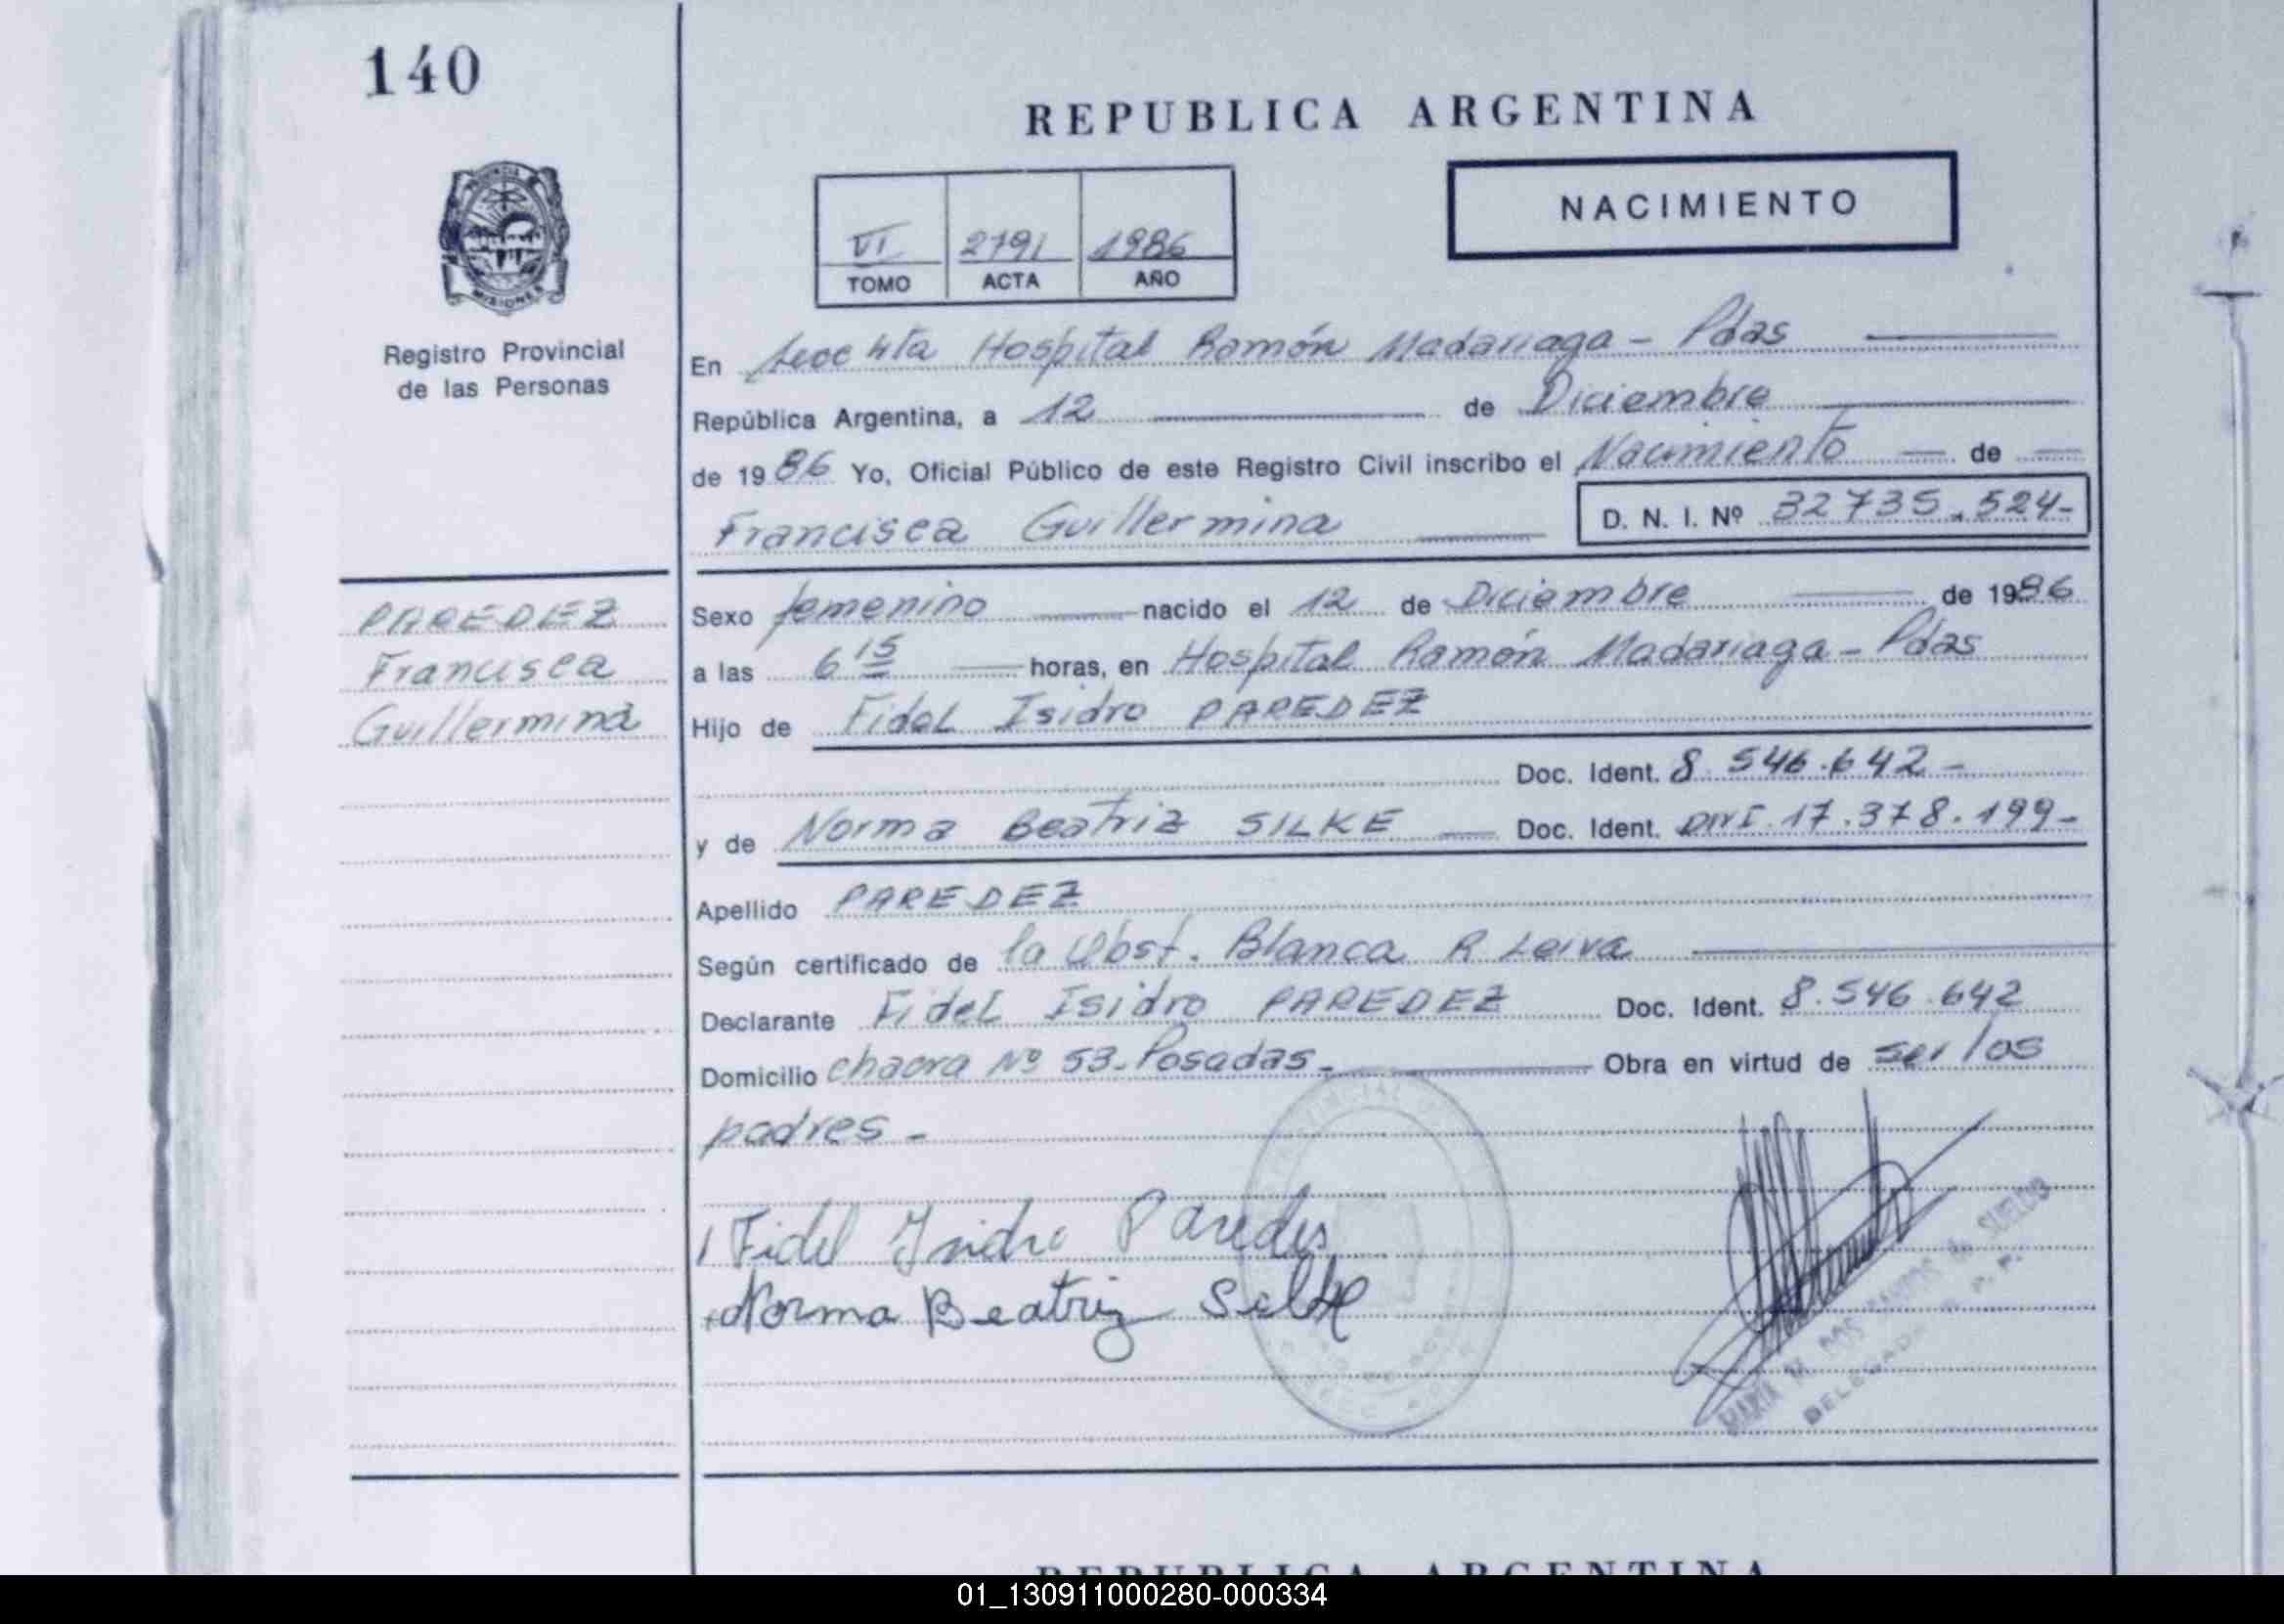 140
REPUBLICA ARGENTINA
NACIMIENTO
PROVINCIA
MISIONES
Registro Provincial
de las Personas
VI 2791 1986
TOMO ACTA AÑO
En Secc 4ta Hospital Ramón Madariaga - Pdas
República Argentina, a 12 de Diciembre
de 1986 Yo, Oficial Público de este Registro Civil inscribo el Nacimiento de
Francisca Guillermina D. N. I. Nº 32735.524-
PAREDEZ
Francisca
Guillermina
Sexo femenino nacido el 12 de Diciembre de 1986
a las 6 15 horas, en Hospital Ramón Madariaga - Pdas
Hijo de Fidel Isidro PAREDEZ
Doc. Ident. 8.546.642-
y de Norma Beatriz SILKE Doc. Ident. DNI. 17.378.199-
Apellido PAREDEZ
Según certificado de la Obst. Blanca R Leiva
Declarante Fidel Isidro PAREDEZ Doc. Ident. 8.546.642
Domicilio chacra Nº 53-Posadas- Obra en virtud de ser los
padres-
Fidel Isidro Paredes
Norma Beatriz Silke
MARIA DOS SANTOS de SUELDO
DELEGADA R. P. P.
REPUBLICA ARGENTINA
01_130911000280-000334